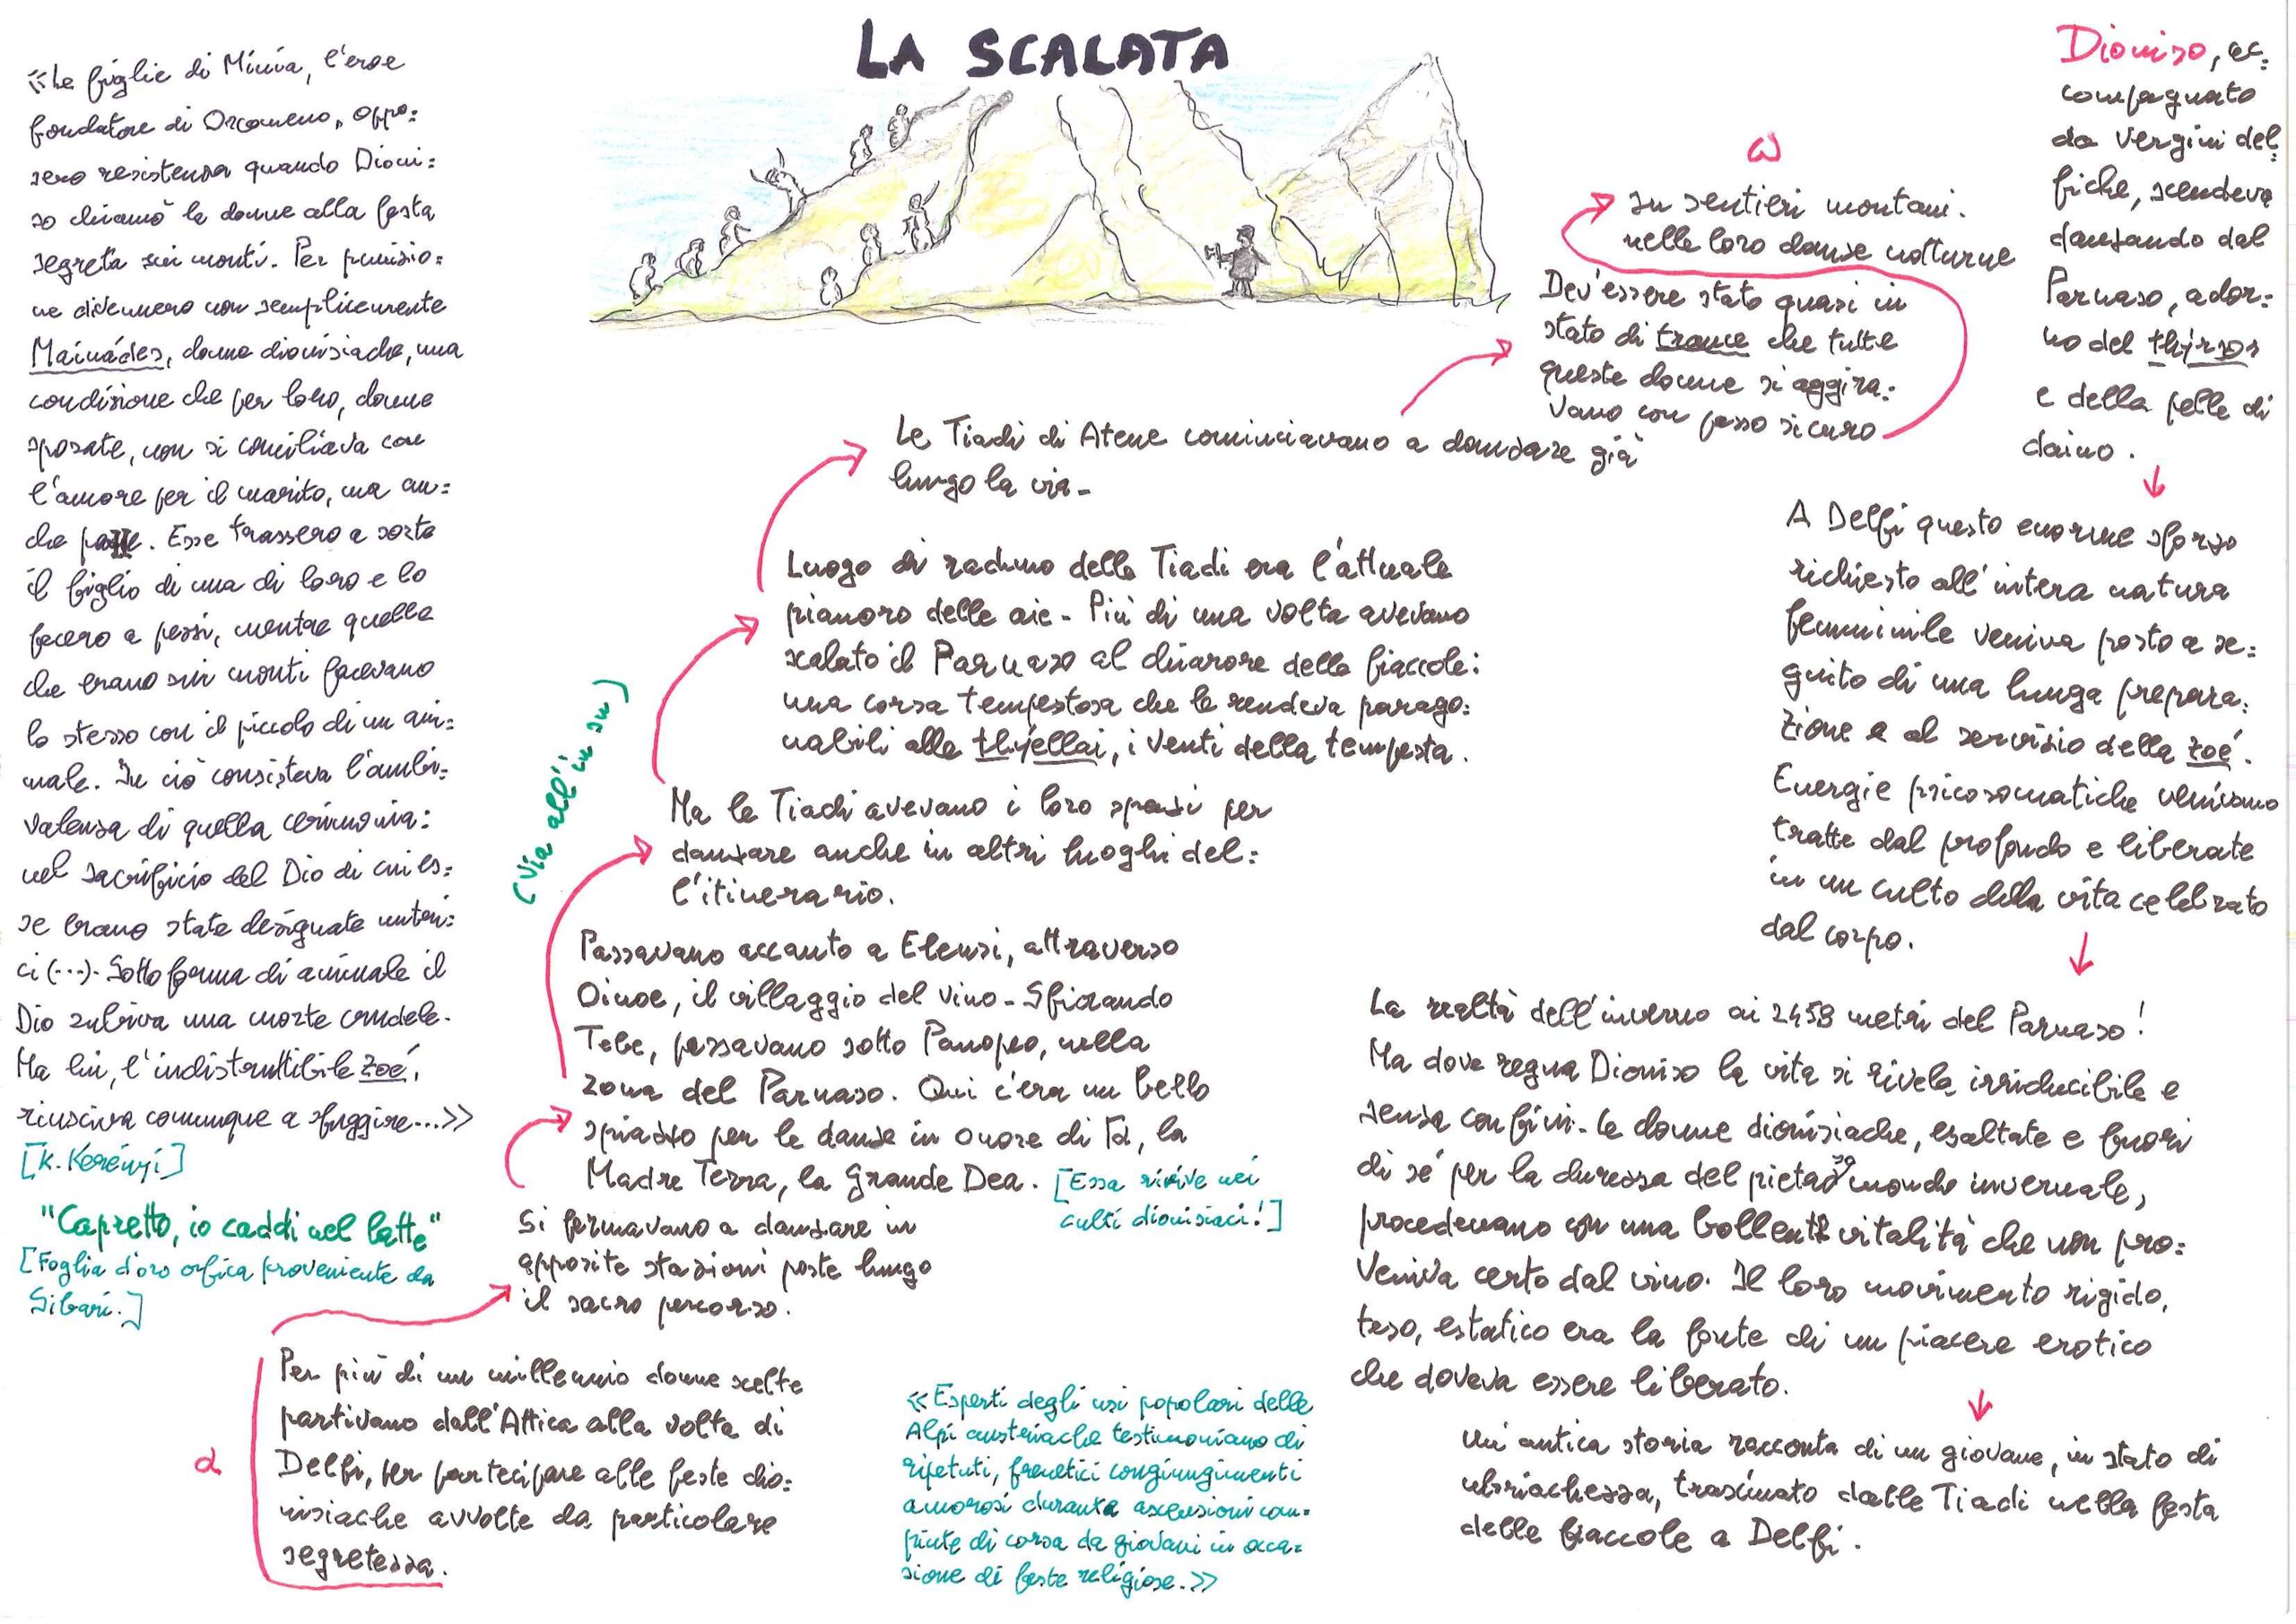 LA SCALATA
«Le figlie di Minia, l'eroe
fondatore di Orcomeno, oppo=
sero resistenza quando Dioni=
so chiamò le donne alla festa
segreta sui monti. Per punizio=
ne divennero non semplicemente
Mainádes, donne dionisiache, una
condizione che per loro, donne
sposate, non si conciliava con
l'amore per il marito, ma an=
che . Esse trassero a sorte
il figlio di una di loro e lo
fecero a pezzi, mentre quelle
che erano sui monti facevano
lo stesso con il piccolo di un ani=
male. In ciò consisteva l'ambi=
valenza di quella cerimonia:
nel sacrificio del Dio di cui es=
se erano state designate nutri=
ci (...). Sotto forma di animale il
Dio subiva una morte crudele.
Ma lui, l'indistruttibile zoé,
riusciva comunque a sfuggire...»
[K. Kerényi]
"Capretto, io caddi nel latte"
[Foglia d'oro orfica proveniente da
Sibari.]
α
Per più di un millennio donne scelte
partivano dall'Attica alla volta di
Delfi, per partecipare alle feste dio=
nisiache avvolte da particolare
segretezza.
Si fermavano a danzare in
apposite stazioni poste lungo
il sacro percorso.
Passavano accanto a Eleusi, attraverso
Oinoe, il villaggio del vino. Sfiorando
Tebe, passavano sotto Panopeo, nella
zona del Parnaso. Qui c'era un bello
spiazzo per le danze in onore di Ga, la
Madre Terra, la Grande Dea. [Essa rivive nei
culti dionisiaci!]
(Via all'in su)
Ma le Tiadi avevano i loro spiazzi per
danzare anche in altri luoghi del=
l'itinerario.
Luogo di raduno delle Tiadi era l'attuale
pianoro delle aie. Più di una volta avevano
scalato il Parnaso al chiarore delle fiaccole:
una corsa tempestosa che le rendeva parago=
nabili alle thýellai, i venti della tempesta.
Le Tiadi di Atene cominciavano a danzare già
lungo la via.
Dev'essere stato quasi in
stato di trance che tutte
queste donne si aggira=
vano con passo sicuro
nelle loro danze notturne
su sentieri montani.
ω
Dioniso, ac=
compagnato
da Vergini del=
fiche, scendeva
danzando dal
Parnaso, ador=
no del thýrsos
e della pelle di
daino.
A Delfi questo enorme sforzo
richiesto all'intera natura
femminile veniva posto a se=
guito di una lunga prepara=
zione e al servizio della zoé.
Energie psicosomatiche venivano
tratte dal profondo e liberate
in un culto della vita celebrato
dal corpo.
La realtà dell'inverno ai 2459 metri del Parnaso!
Ma dove regna Dioniso la vita si rivela irriducibile e
senza confini. Le donne dionisiache, esaltate e fuori
di sé per la durezza del pietroso mondo invernale,
procedevano con una bollente vitalità che non pro=
veniva certo dal vino. Il loro movimento rigido,
teso, estatico era la fonte di un piacere erotico
che doveva essere liberato.
Un'antica storia racconta di un giovane, in stato di
ubriachezza, trascinato dalle Tiadi nella festa
delle fiaccole a Delfi.
«Esperti degli usi popolari delle
Alpi austriache testimoniano di
ripetuti, frenetici congiungimenti
amorosi durante ascensioni com=
piute di corsa da giovani in occa=
sione di feste religiose.»